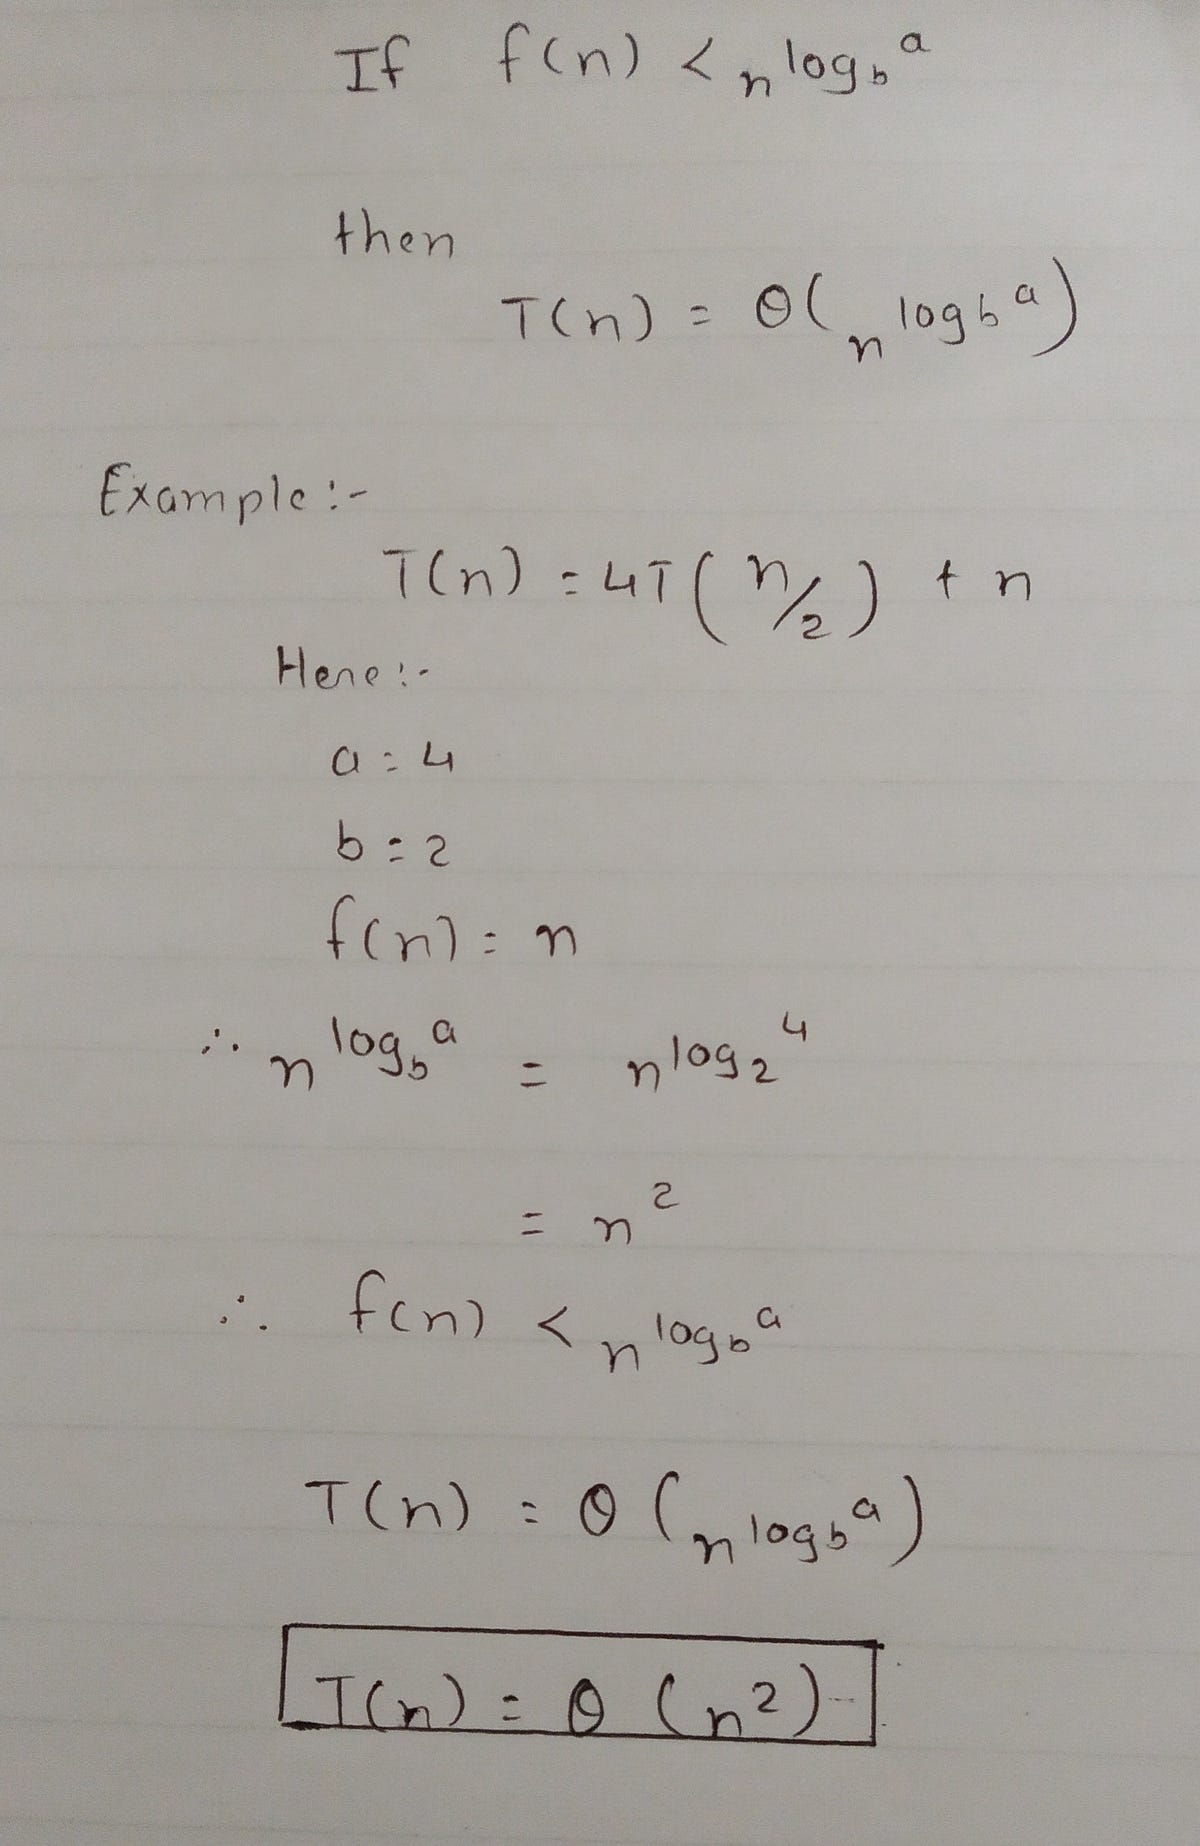 If f(n) < n^log_b a
then
T(n) = θ(n^log_b a)
Example :-
T(n) = 4T(n/2) + n
Here :-
a = 4
b = 2
f(n) = n
∴ n^log_b a = n^log_2 4
= n^2
∴ f(n) < n^log_b a
T(n) = θ(n^log_b a)
T(n) = θ(n^2)